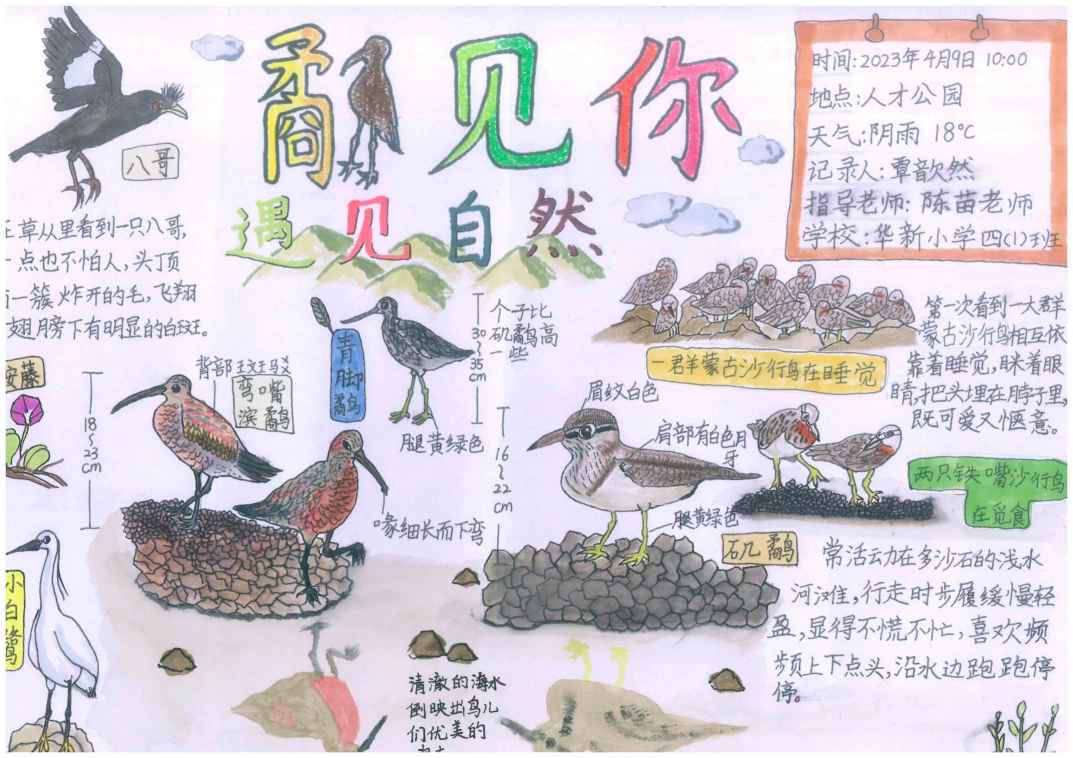 矞见你
遇见自然
时间:2023年4月9日 10:00
地点:人才公园
天气:阴雨 18℃
记录人:覃歆然
指导老师:陈苗老师
学校:华新小学四(1)班
八哥
草丛里看到一只八哥,
一点也不怕人,头顶
一簇炸开的毛,飞翔
翅膀下有明显的白斑。
背部斑驳
弯嘴滨鹬
18~23cm
喙细长而下弯
青脚鹬
30~35cm
腿黄绿色
个子比
矶鹬高
一些
一群蒙古沙行鸟在睡觉
第一次看到一大群
蒙古沙行鸟相互依
靠着睡觉,眯着眼
睛,把头埋在脖子里,
既可爱又惬意。
眉纹白色
肩部有白色月牙
16~22cm
腿黄绿色
矶鹬
两只铁嘴沙行鸟
在觅食
常活动在多沙石的浅水
河滩,行走时步履缓慢轻
盈,显得不慌不忙,喜欢频
频上下点头,沿水边跑跑停
停。
小白鹭
清澈的海水
倒映出鸟儿
们优美的